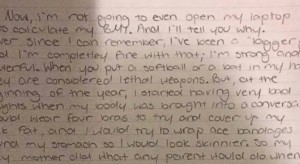 Now, I'm not going to even open my laptop
to calculate my BMI. And I'll tell you why.
ver since I can remember, I've been a "bigger
d I'm completely fine with that; I'm strong and
erful. When you put a softball or a bat in my ha
y are considered lethal weapons. But, at the
ginning of the year, I started having very bad
ghts when my body was brought into a conversa
ould wear four bras to try and cover up my
k fat, and I would try to wrap ace bandages
nd my stomach so I would look skinnier. So my
y mother did what any parent would do when